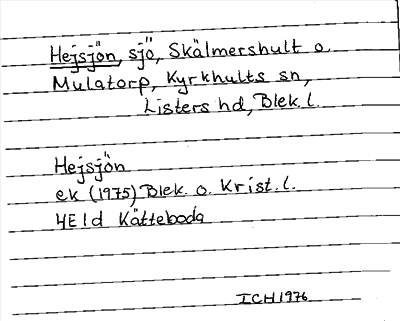 Hejsjön, sjö, Skälmershult o.
Mulatorp, Kyrkhults sn,
Listers hd, Blek. l.
Hejsjön
ek (1975) Blek. o. Krist. l.
4E1d Kätteboda
ICH 1976